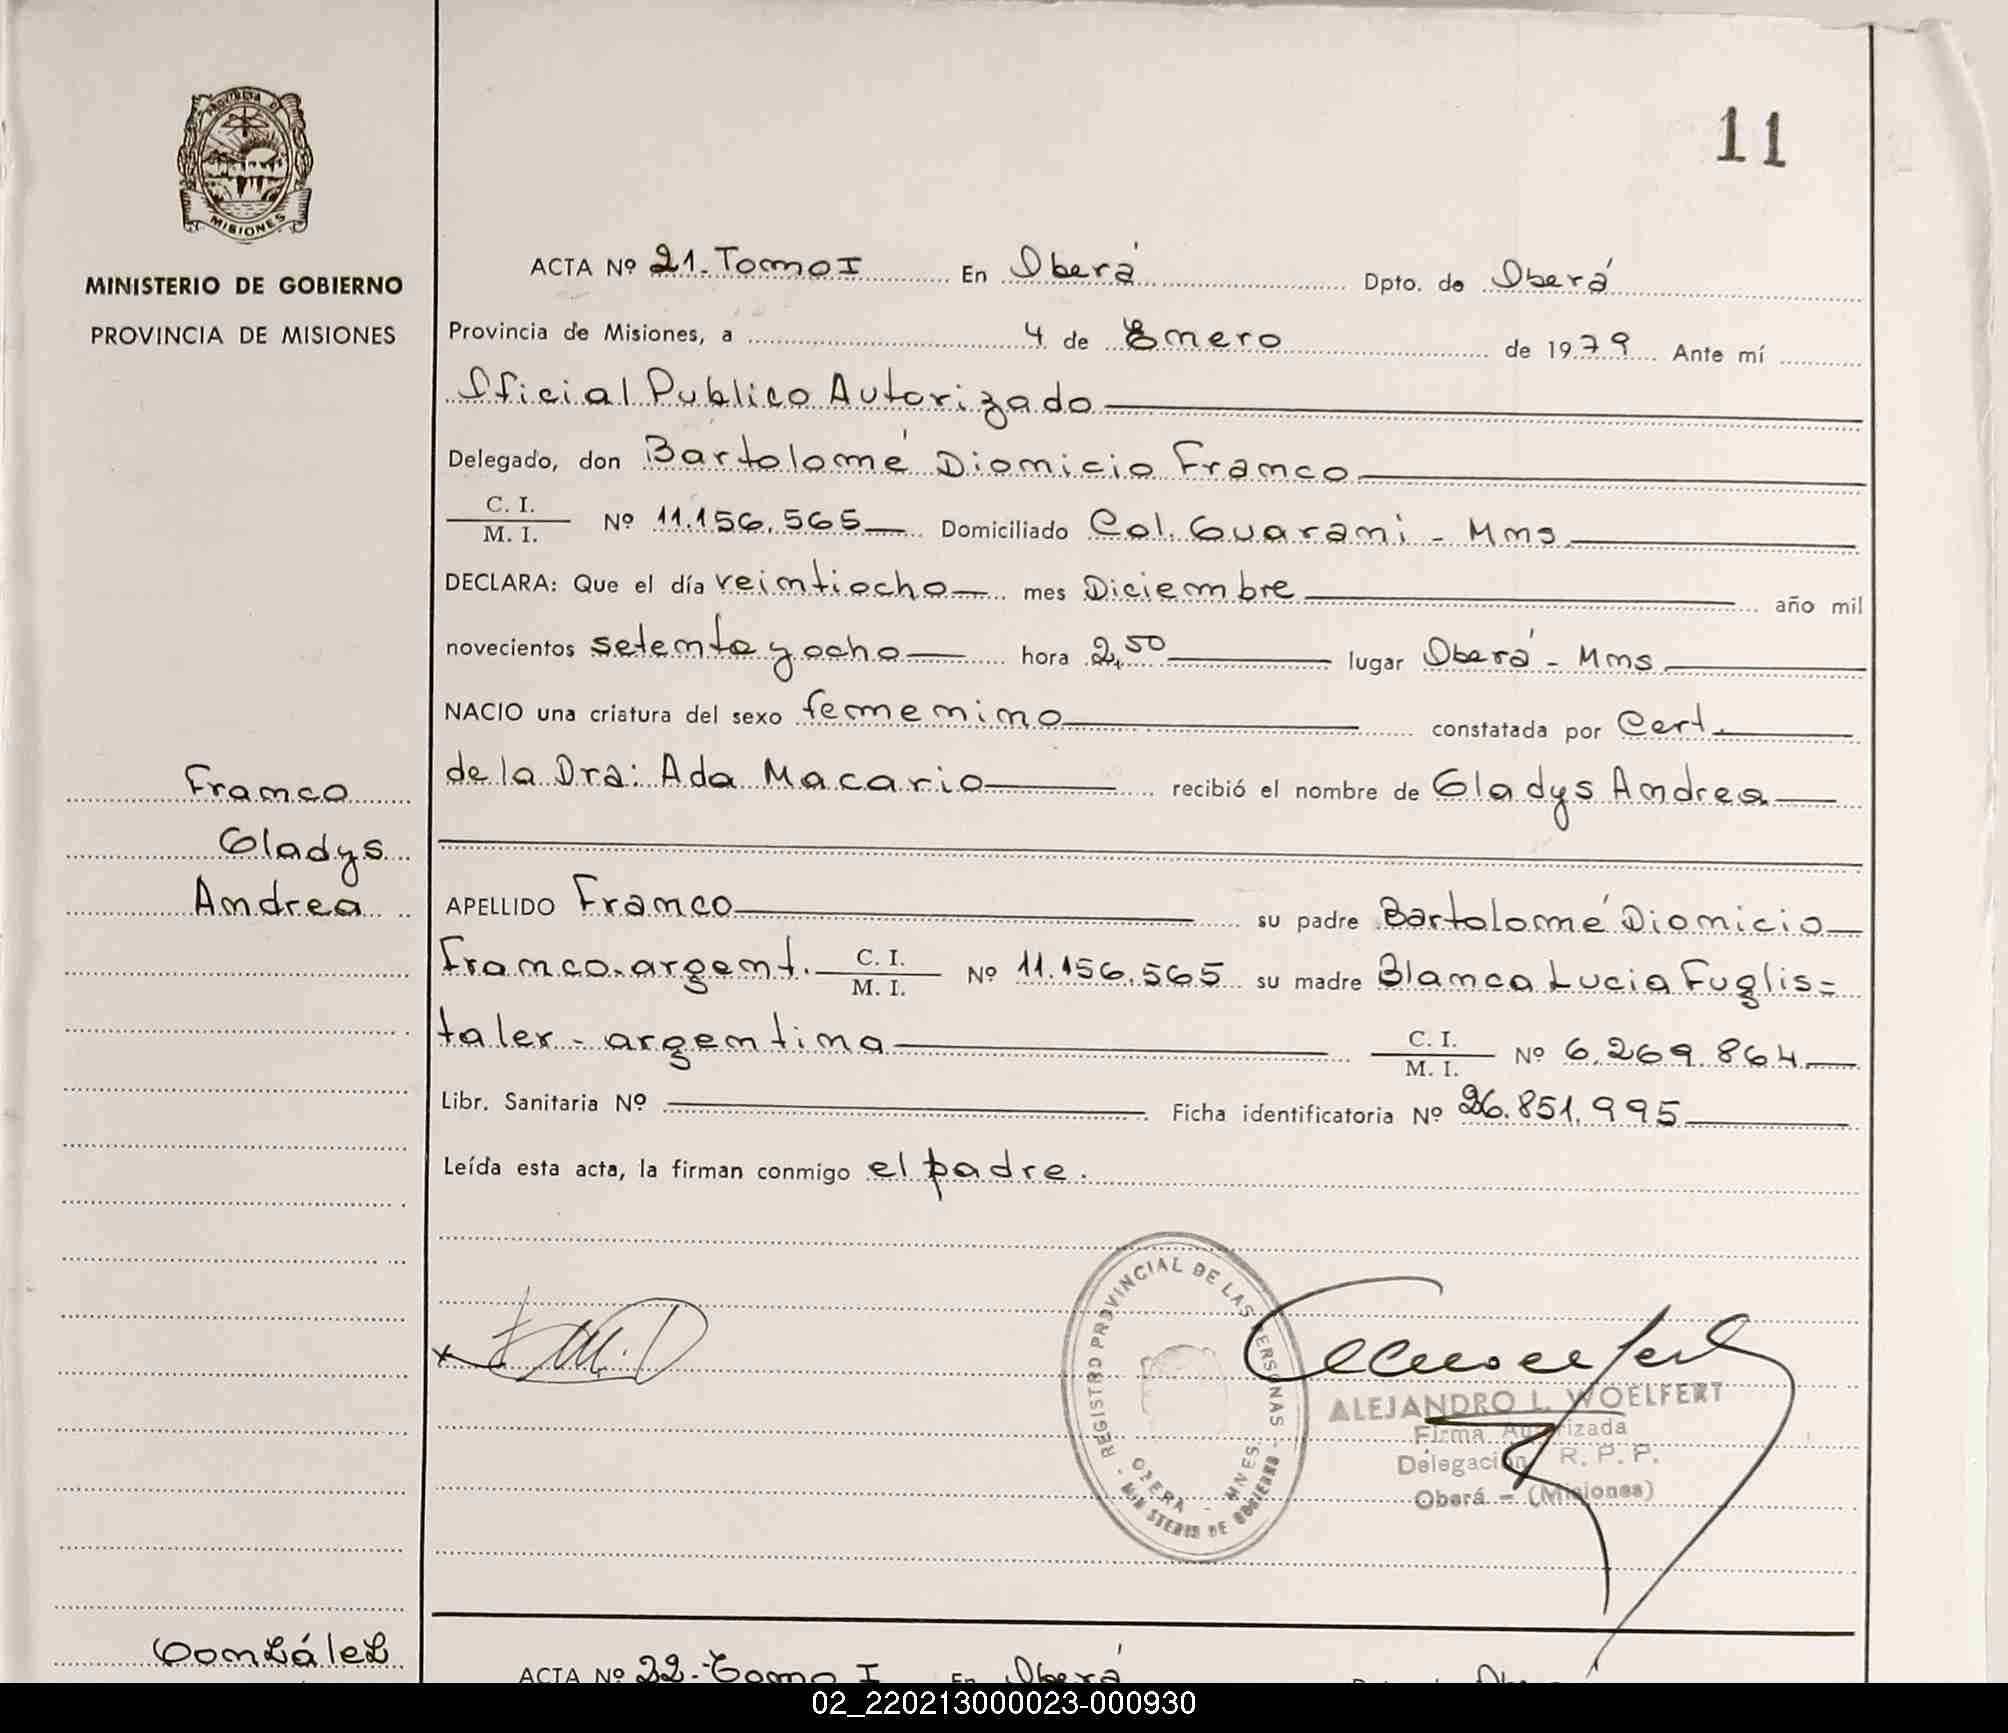 PROVINCIA DE
MISIONES
MINISTERIO DE GOBIERNO
PROVINCIA DE MISIONES
11
ACTA Nº 21. Tomo I En Oberá Dpto. de Oberá
Provincia de Misiones, a 4 de Enero de 1979 Ante mí
Oficial Publico Autorizado
Delegado, don Bartolomé Dionicio Franco
C. I.
M. I. Nº 11.156.565 Domiciliado Col. Guarani - Mnes
DECLARA: Que el día veintiocho mes Diciembre año mil
novecientos setenta y ocho hora 2,50 lugar Oberá - Mnes
NACIO una criatura del sexo femenino constatada por Cert.
de la Dra: Ada Macario recibió el nombre de Gladys Andrea
Franco
Gladys
Andrea
APELLIDO Franco su padre Bartolomé Dionicio
Franco. argent. C. I.
M. I. Nº 11.156.565 su madre Blanca Lucia Fuglis=
taler - argentina C. I.
M. I. Nº 6.269.864
Libr. Sanitaria Nº Ficha identificatoria Nº 26.851.995
Leída esta acta, la firman conmigo el padre.
REGISTRO PROVINCIAL DE LAS PERSONAS
OBERA - MNES
MINISTERIO DE GOBIERNO
ALEJANDRO L. WOELFERT
Firma Autorizada
Delegación R. P. P.
Oberá - (Misiones)
González
ACTA Nº 22. Tomo I En Oberá
02_220213000023-000930